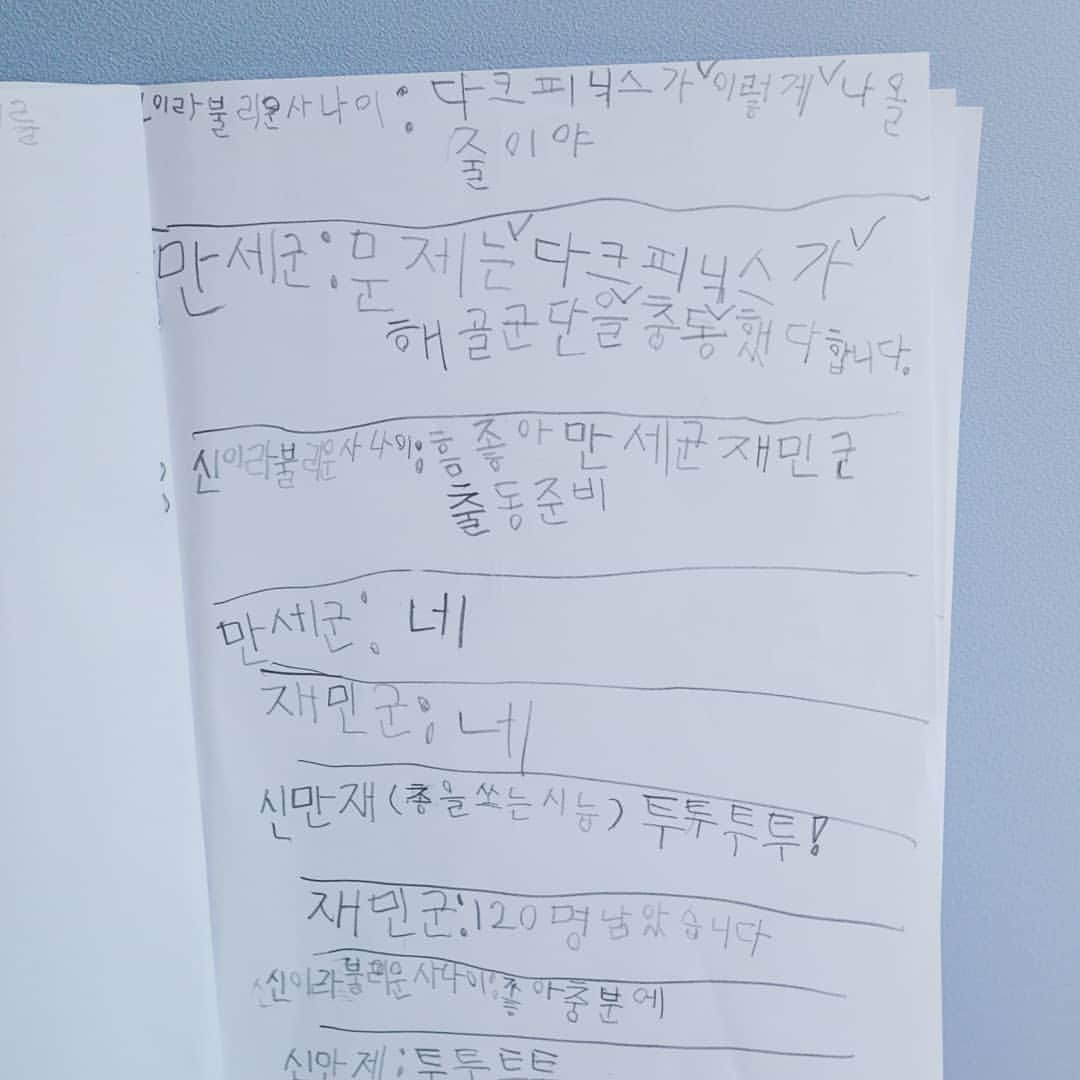 이라불리운사나이: 다크피닉스가 이렇게 나올
줄이야
만세군: 문제는 다크피닉스가
해골군단을 충동했다합니다.
신이라불리운사나이: 흠좋아만세군재민군
출동준비
만세군: 네
재민군: 네
신만재(총을쏘는시늉) 투투투투!
재민군: 120명남았습니다
신이라불리운사나이: 좋아충분에
신만제: 투투트트